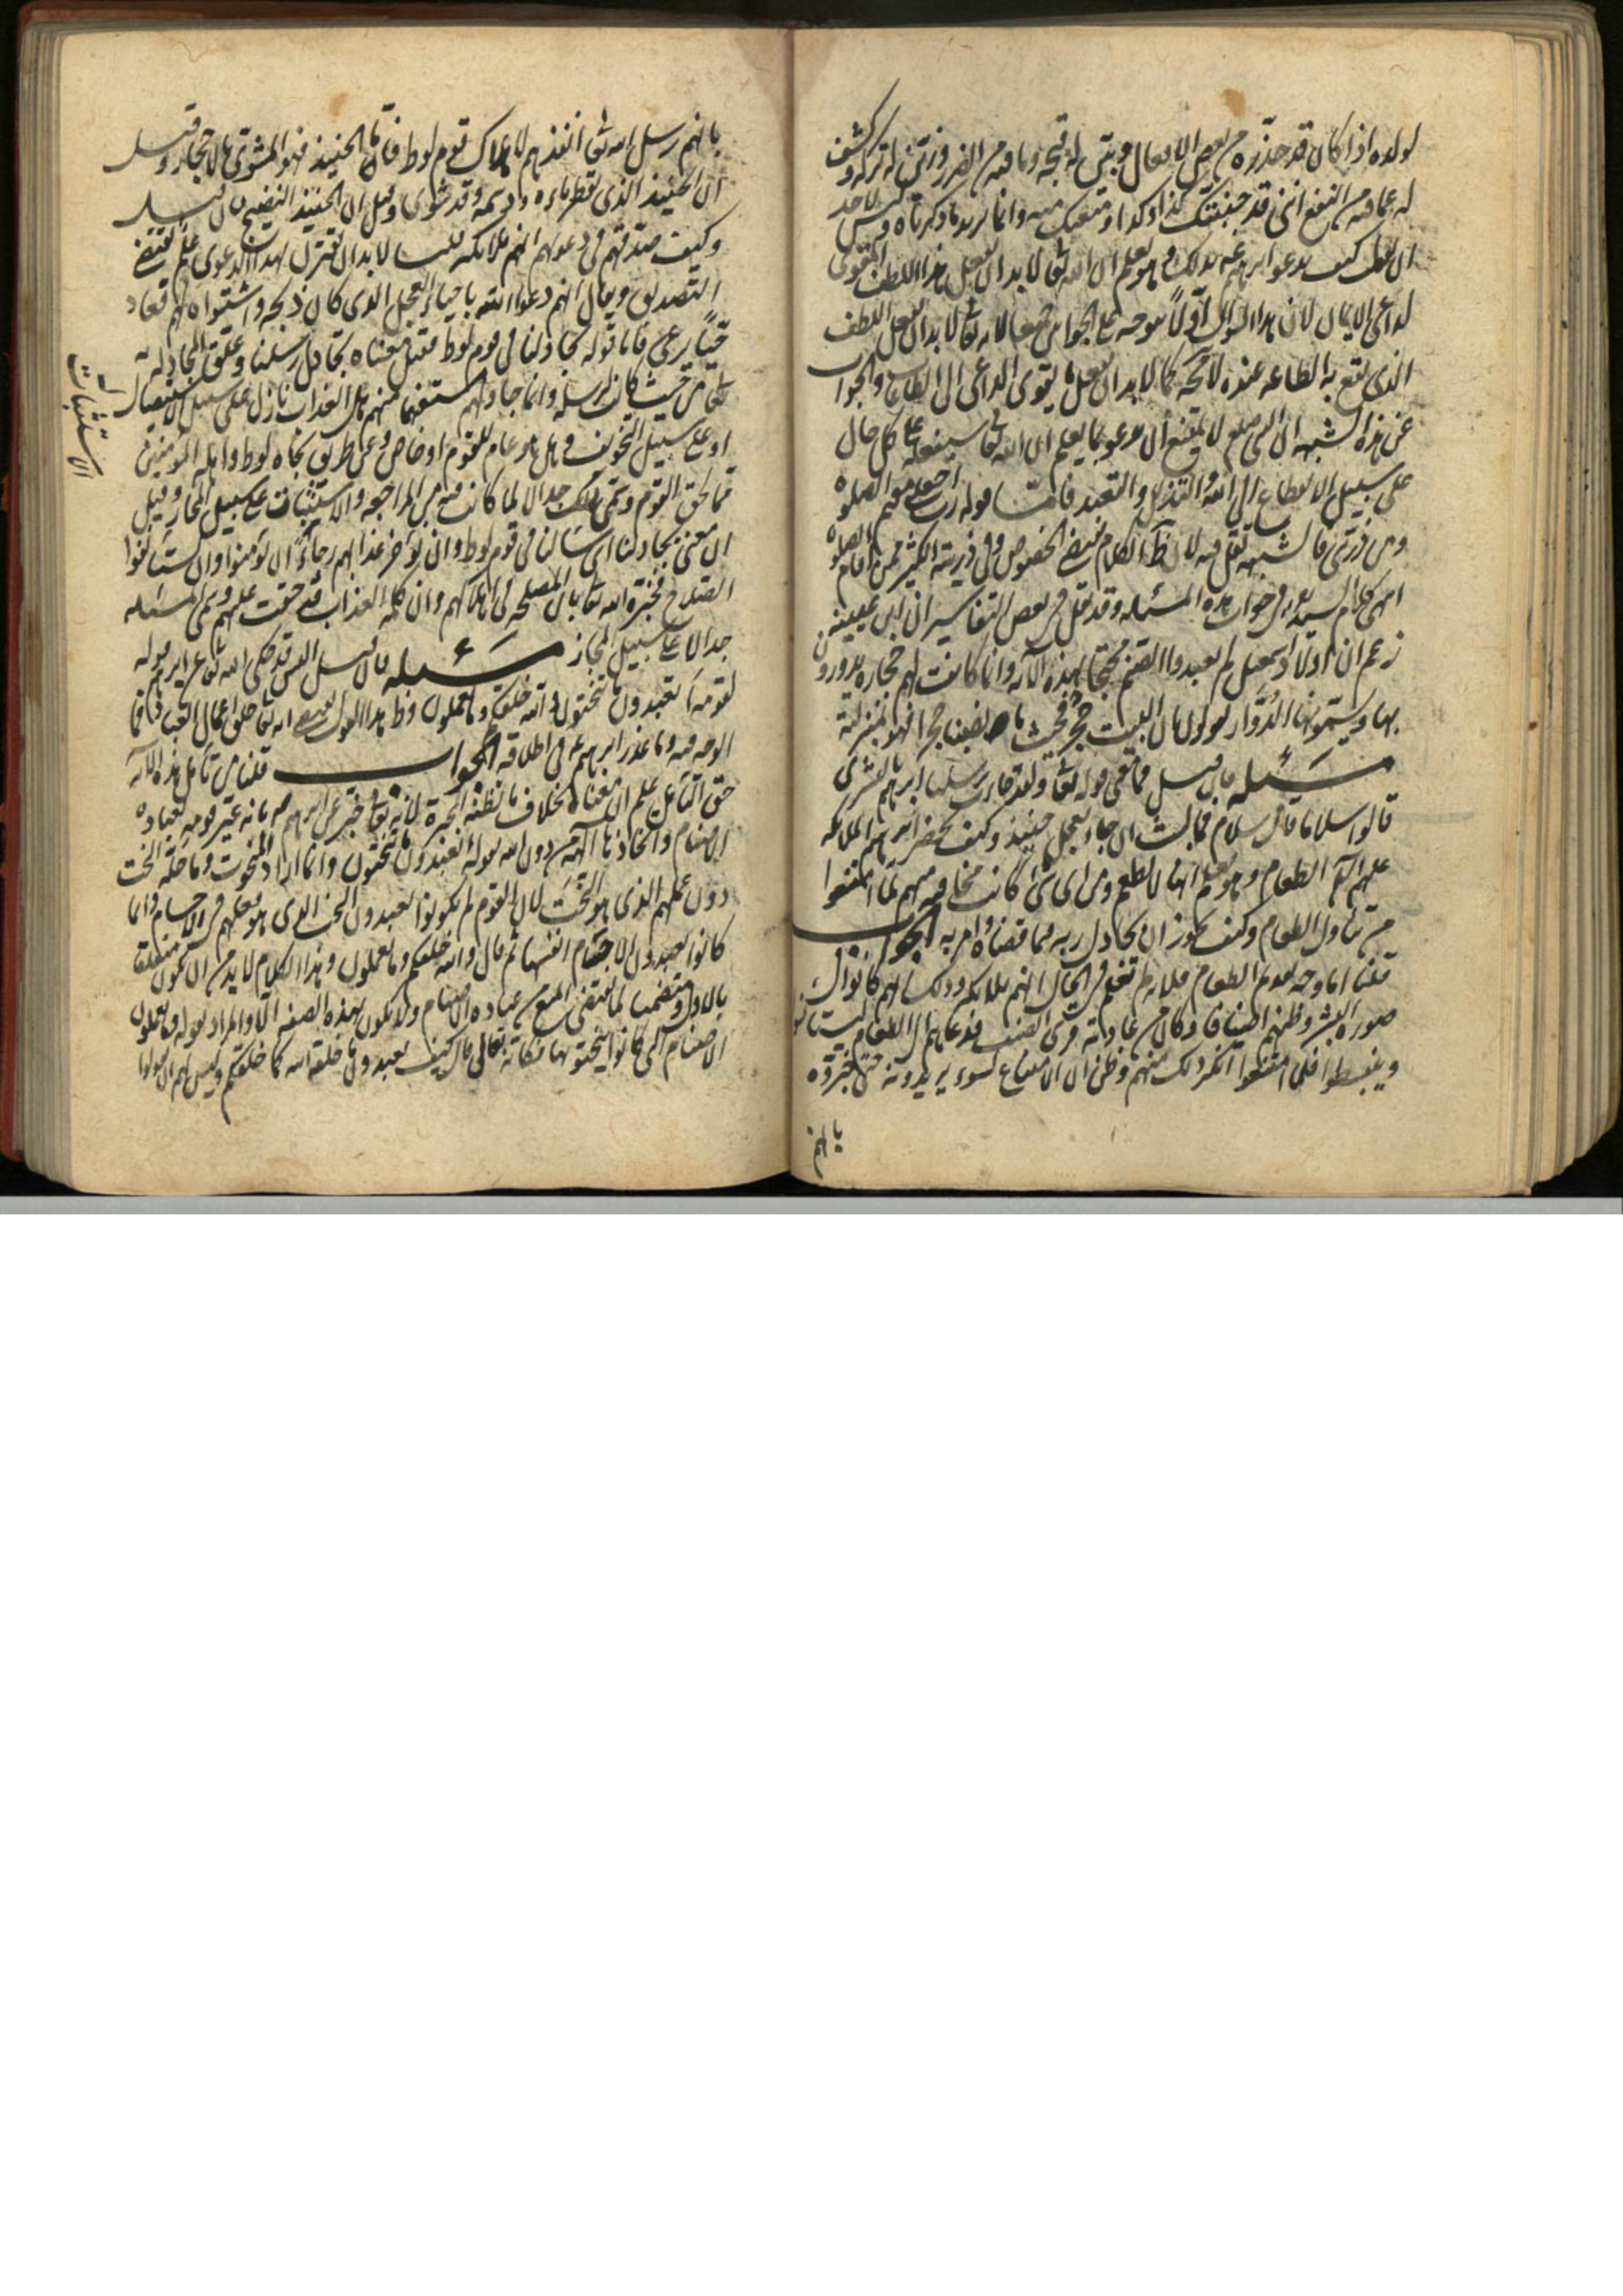 لولده اذا كان قد حذره من بعض الافعال وبين له قبحه وما فيه من الضرر وزين له تركه وكشف
له عما فيه من النفع انني قد جنبتك كذا وكذا ومنعتك منه وانما يريد ما ذكرناه وليس لاحد
ان يقول كيف يدعو ابرهيم ع بذلك وهو يعلم ان الله تعالى لا بد ان يفعل هذا اللطف المقوى
لداعى الايمان لان هذا السوال اولا يتوجه على الجوابين جميعا لانه تعالى لا بد ان يفعل اللطف
الذى يقع به الطاعه عنده لا محاله كما لا بد ان يفعل ما يقوى الداعى الى الطاعات والجواب
عن هذه الشبهه ان النبى صلعم لا يمتنع ان يدعو بما يعلم ان الله تعالى سيفعله على كل حال
على سبيل الانقطاع الى الله والتذلل والتعبد فاما قوله رب اجعلنى مقيم الصلوه
ومن ذريتى فالشبهه تقل فيه لان ظاهر الكلام يقتضى الخصوص وفى ذريته الكثير ممن اقام الصلوه
انتهى كلام السيد ره فى جواب هذه المسئله وقد نقل فى بعض التفاسير ان ابن عيينه
زعم ان اولاد اسمعيل لم يعبدوا الصنم محتجا بهذه الآيه وانما كانت لهم حجاره يدورون
بها ويسمونها الدوار ويقولون البيت حجر فحيث ما نصبنا حجرا فهو بمنزلته
مسئله فان قيل فما معنى قوله تعالى ولقد جاءت رسلنا ابرهيم بالبشرى
قالوا سلاما قال سلام فما لبث ان جاء بعجل حنيذ وكيف يحضر ابرهيم الملائكه
عليهم السلام الطعام وهو يعلم انها لا تطعم ومن اى شئ كانت مخافته منهم لما امتنعوا
من تناول الطعام وكيف يجوز ان يجادل ربه فيما قضاه وامر به الجواب
قلنا اما وجه تقديم الطعام فلانه لم يعلم فى الحال انهم ملائكه وذلك انهم كانوا فى
صوره البشر وظنهم اضيافا وكان من عادته قرى الضيف فدعاهم الى الطعام ليستأنسوا
وينبسطوا فلما امتنعوا انكر ذلك منهم وظن ان الامتناع لسوء يريدونه حتى خبروه
بانهم
بانهم رسل الله تعالى انفذهم لاهلاك قوم لوط فاما الحنيذ فهو المشوى بالاحجار وقيل
ان الحنيذ الذى يقطر ماءه ودسمه وقد شوى وقيل ان الحنيذ النضيج فان قيل
وكيف صدقهم فى دعواهم انهم ملائكه قلنا لا بد ان يقترن بهذه الدعوى علم يقتضى
التصديق ويقال انهم دعوا الله باحياء العجل الذى كان ذبحه وشواه لهم فعاد
حيا يرعى فاما قوله يجادلنا فى قوم لوط فقيل معناه يجادل رسلنا وعلق المجادله به
تعالى من حيث كانت لرسله وانما جادلهم مستفهما منهم هل العذاب نازل على سبيل الاستيصال
او على سبيل التخويف وهل هو عام للقوم او خاص وعن طريق نجاه لوط واهله المؤمنين
مما لحق القوم وسمى ذلك جدالا لما كانت فيه من المراجعه والاستثبات على سبيل المجاز وقيل
ان معنى يجادلنا اى يسائلنا فى قوم لوط وان يؤخر عذابهم رجاء ان يؤمنوا وان يستأنفوا
الصلاح فخبره الله تعالى بان المصلحه فى اهلاكهم وان كلمه العذاب قد حقت عليهم وسمى المسئله
جدالا على سبيل المجاز مسئله فان قيل اليس قد حكى الله تعالى عن ابرهيم قوله
لقومه اتعبدون ما تنحتون والله خلقكم وما تعملون وظاهر هذا القول يقتضى انه تعالى خلق اعمال العباد فما
الوجه فيه وما عذر ابرهيم ع فى اطلاقه الجواب قلنا من تأمل هذه الآيه
حق التأمل علم ان معناها بخلاف ما تظنه المجبره لانه تعالى خبر عن ابرهيم ع بانه عير قومه بعباده
الاصنام واتخاذها آلهه من دون الله بقوله اتعبدون ما تنحتون وانما اراد المنحوت وما حله النحت
دون عملهم الذى هو النحت لان القوم لم يكونوا يعبدون النحت الذى هو فعلهم فى الاجسام وانما
كانوا يعبدون الاجسام انفسها ثم قال والله خلقكم وما تعملون وهذا الكلام لا بد من ان يكون متعلقا
بالاول ومتضمنا لما يقتضى المنع من عباده الاصنام ولا يكون بهذه الصفه الا والمراد بقوله وما تعملون
الاصنام التى كانوا ينحتونها فكانه تعالى قال كيف تعبدون ما خلقه الله كما خلقكم وليس لهم ان يقولوا
الاستثبات